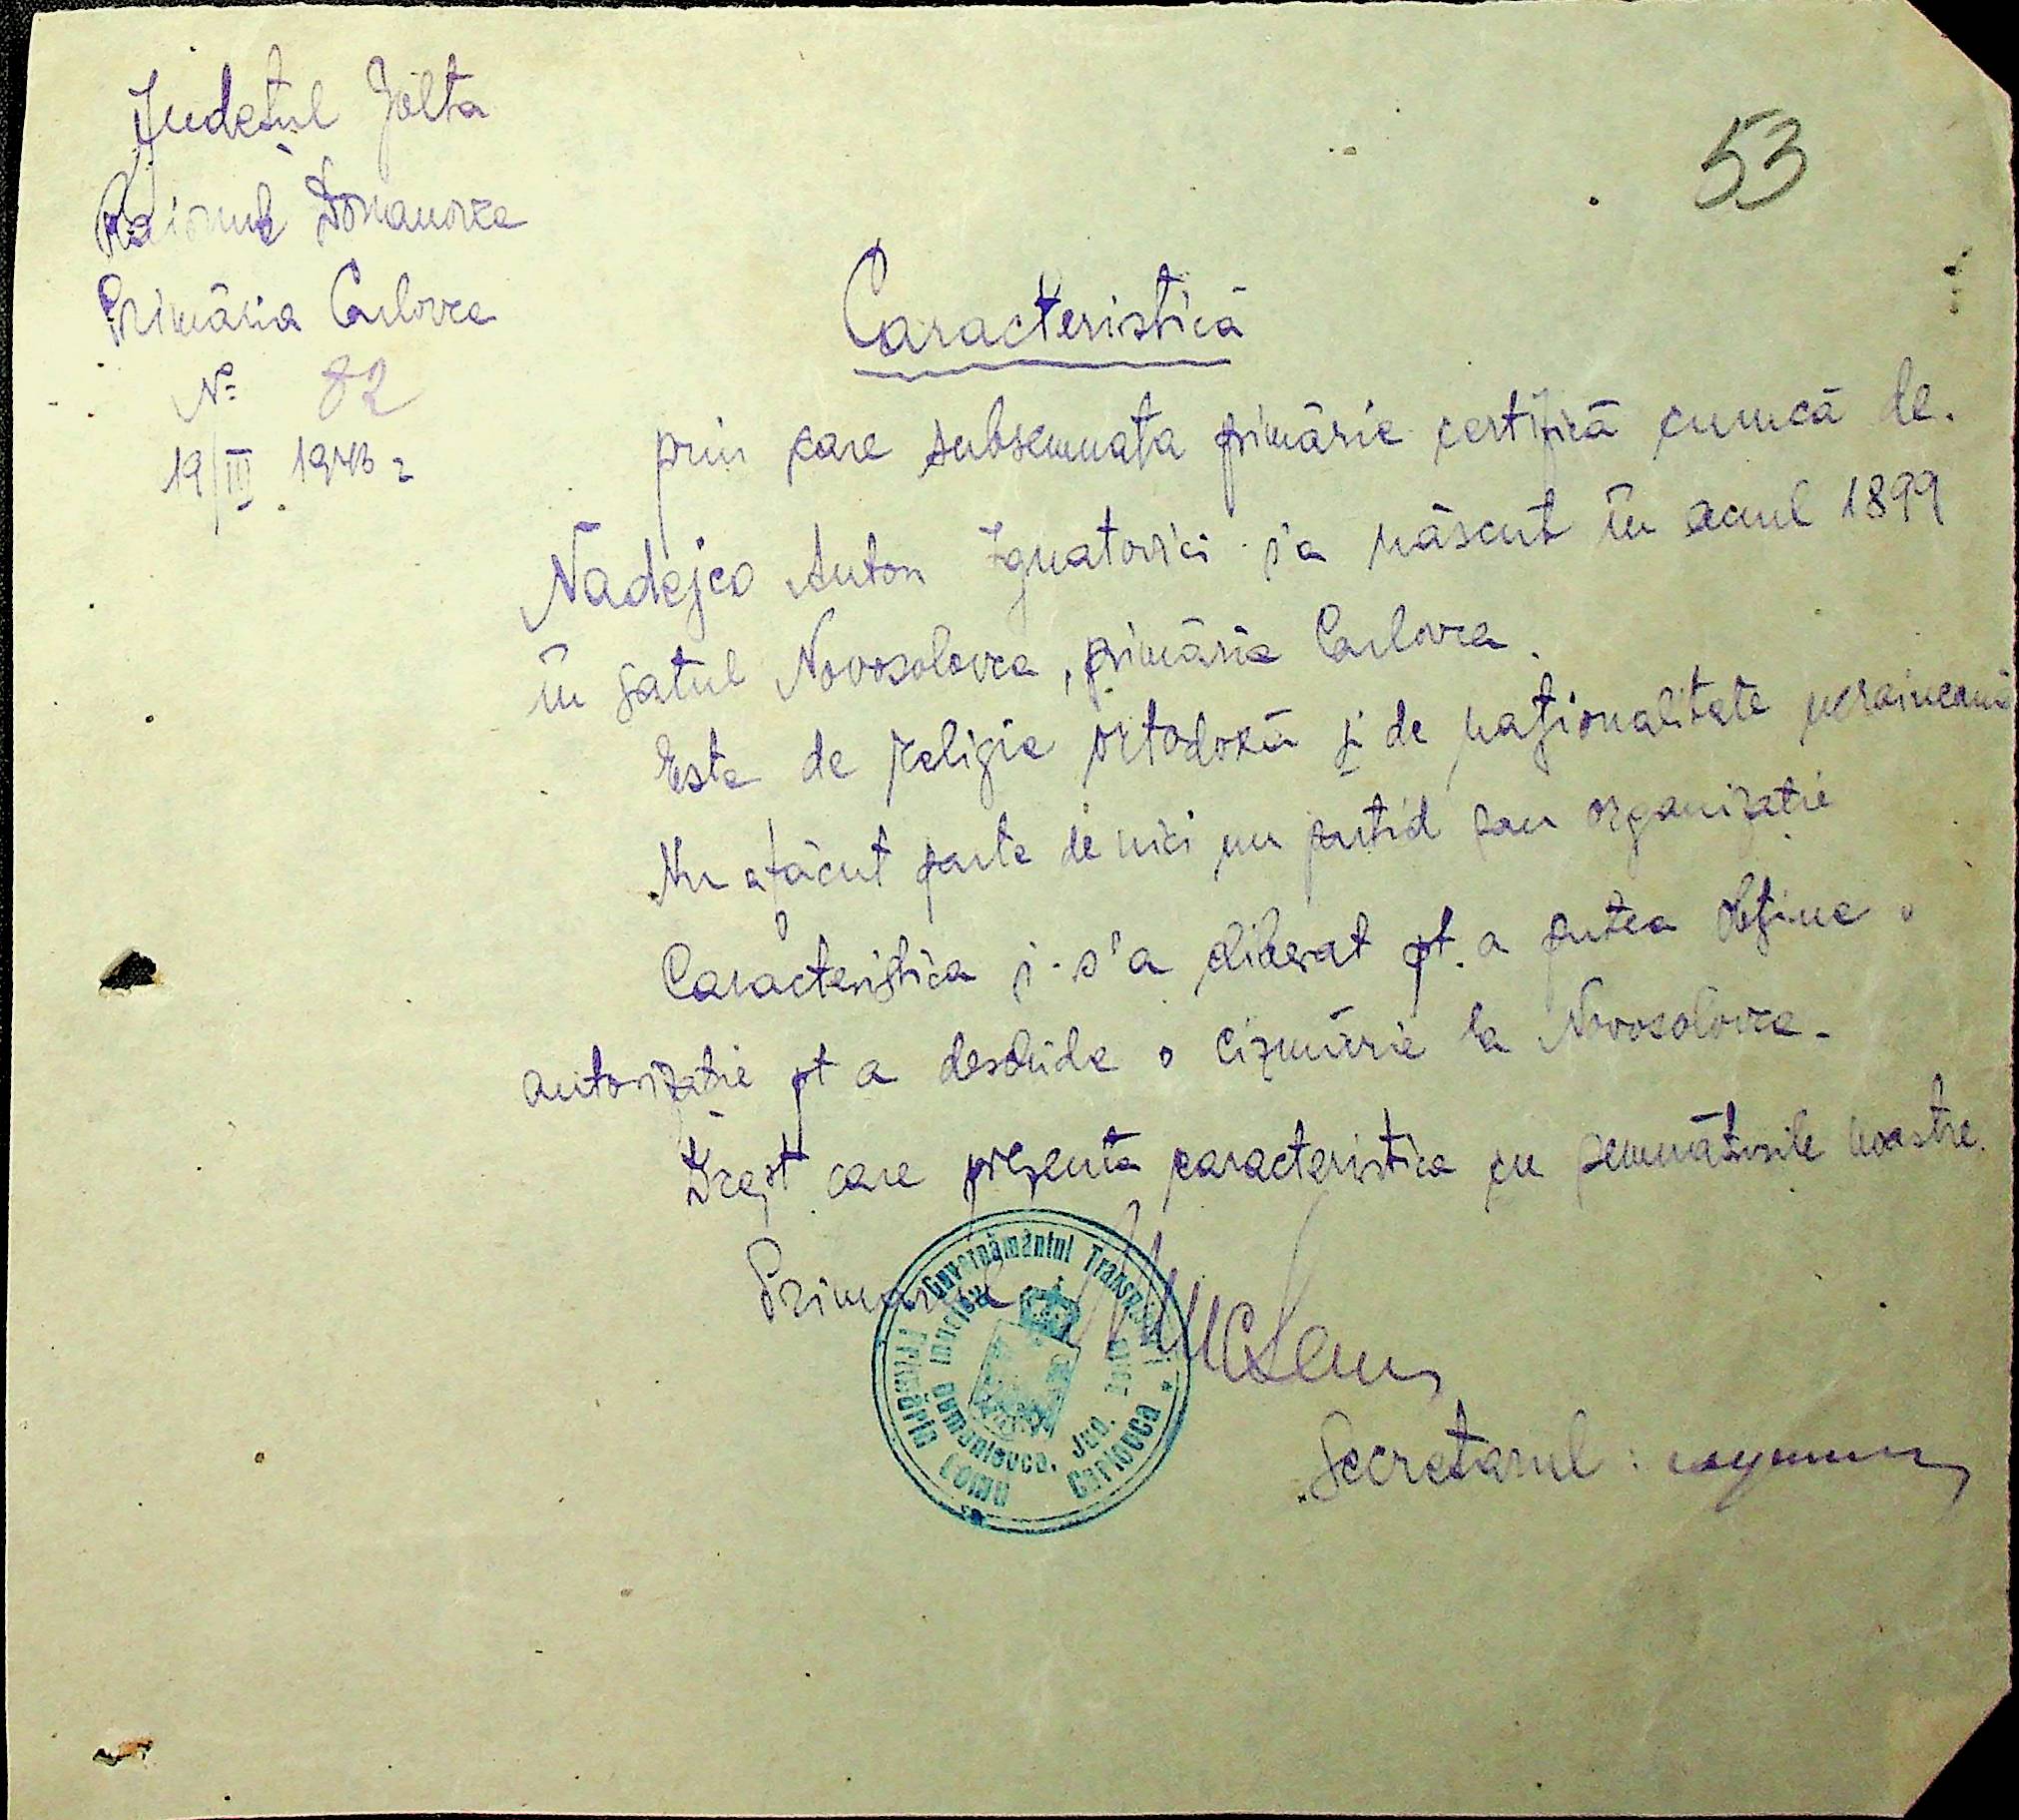 Județul Golta
53
Raionul Domanovca
Primăria Carlovca
№ 82
19/III 1943 г
Caracteristică
prin care subsemnata primărie certifică cumcă le.
Nadejco Anton Ignatovici s'a născut în anul 1899
în satul Novosolovca, primăria Carlovca.
Este de religie ortodoxă și de naționalitate ucraineană
Nu a făcut parte de nici un partid sau organizație
Caracteristica i-s'a eliberat pt. a putea obține o
autorizație pt a deschide o cizmărie la Novosolovca-
Drept care prezenta caracteristica cu semnăturile noastre.
Primarul
Guvernământul Transnistriei * Primăria Comu Carlovca
Dumanievca. Jud.
Secretarul: